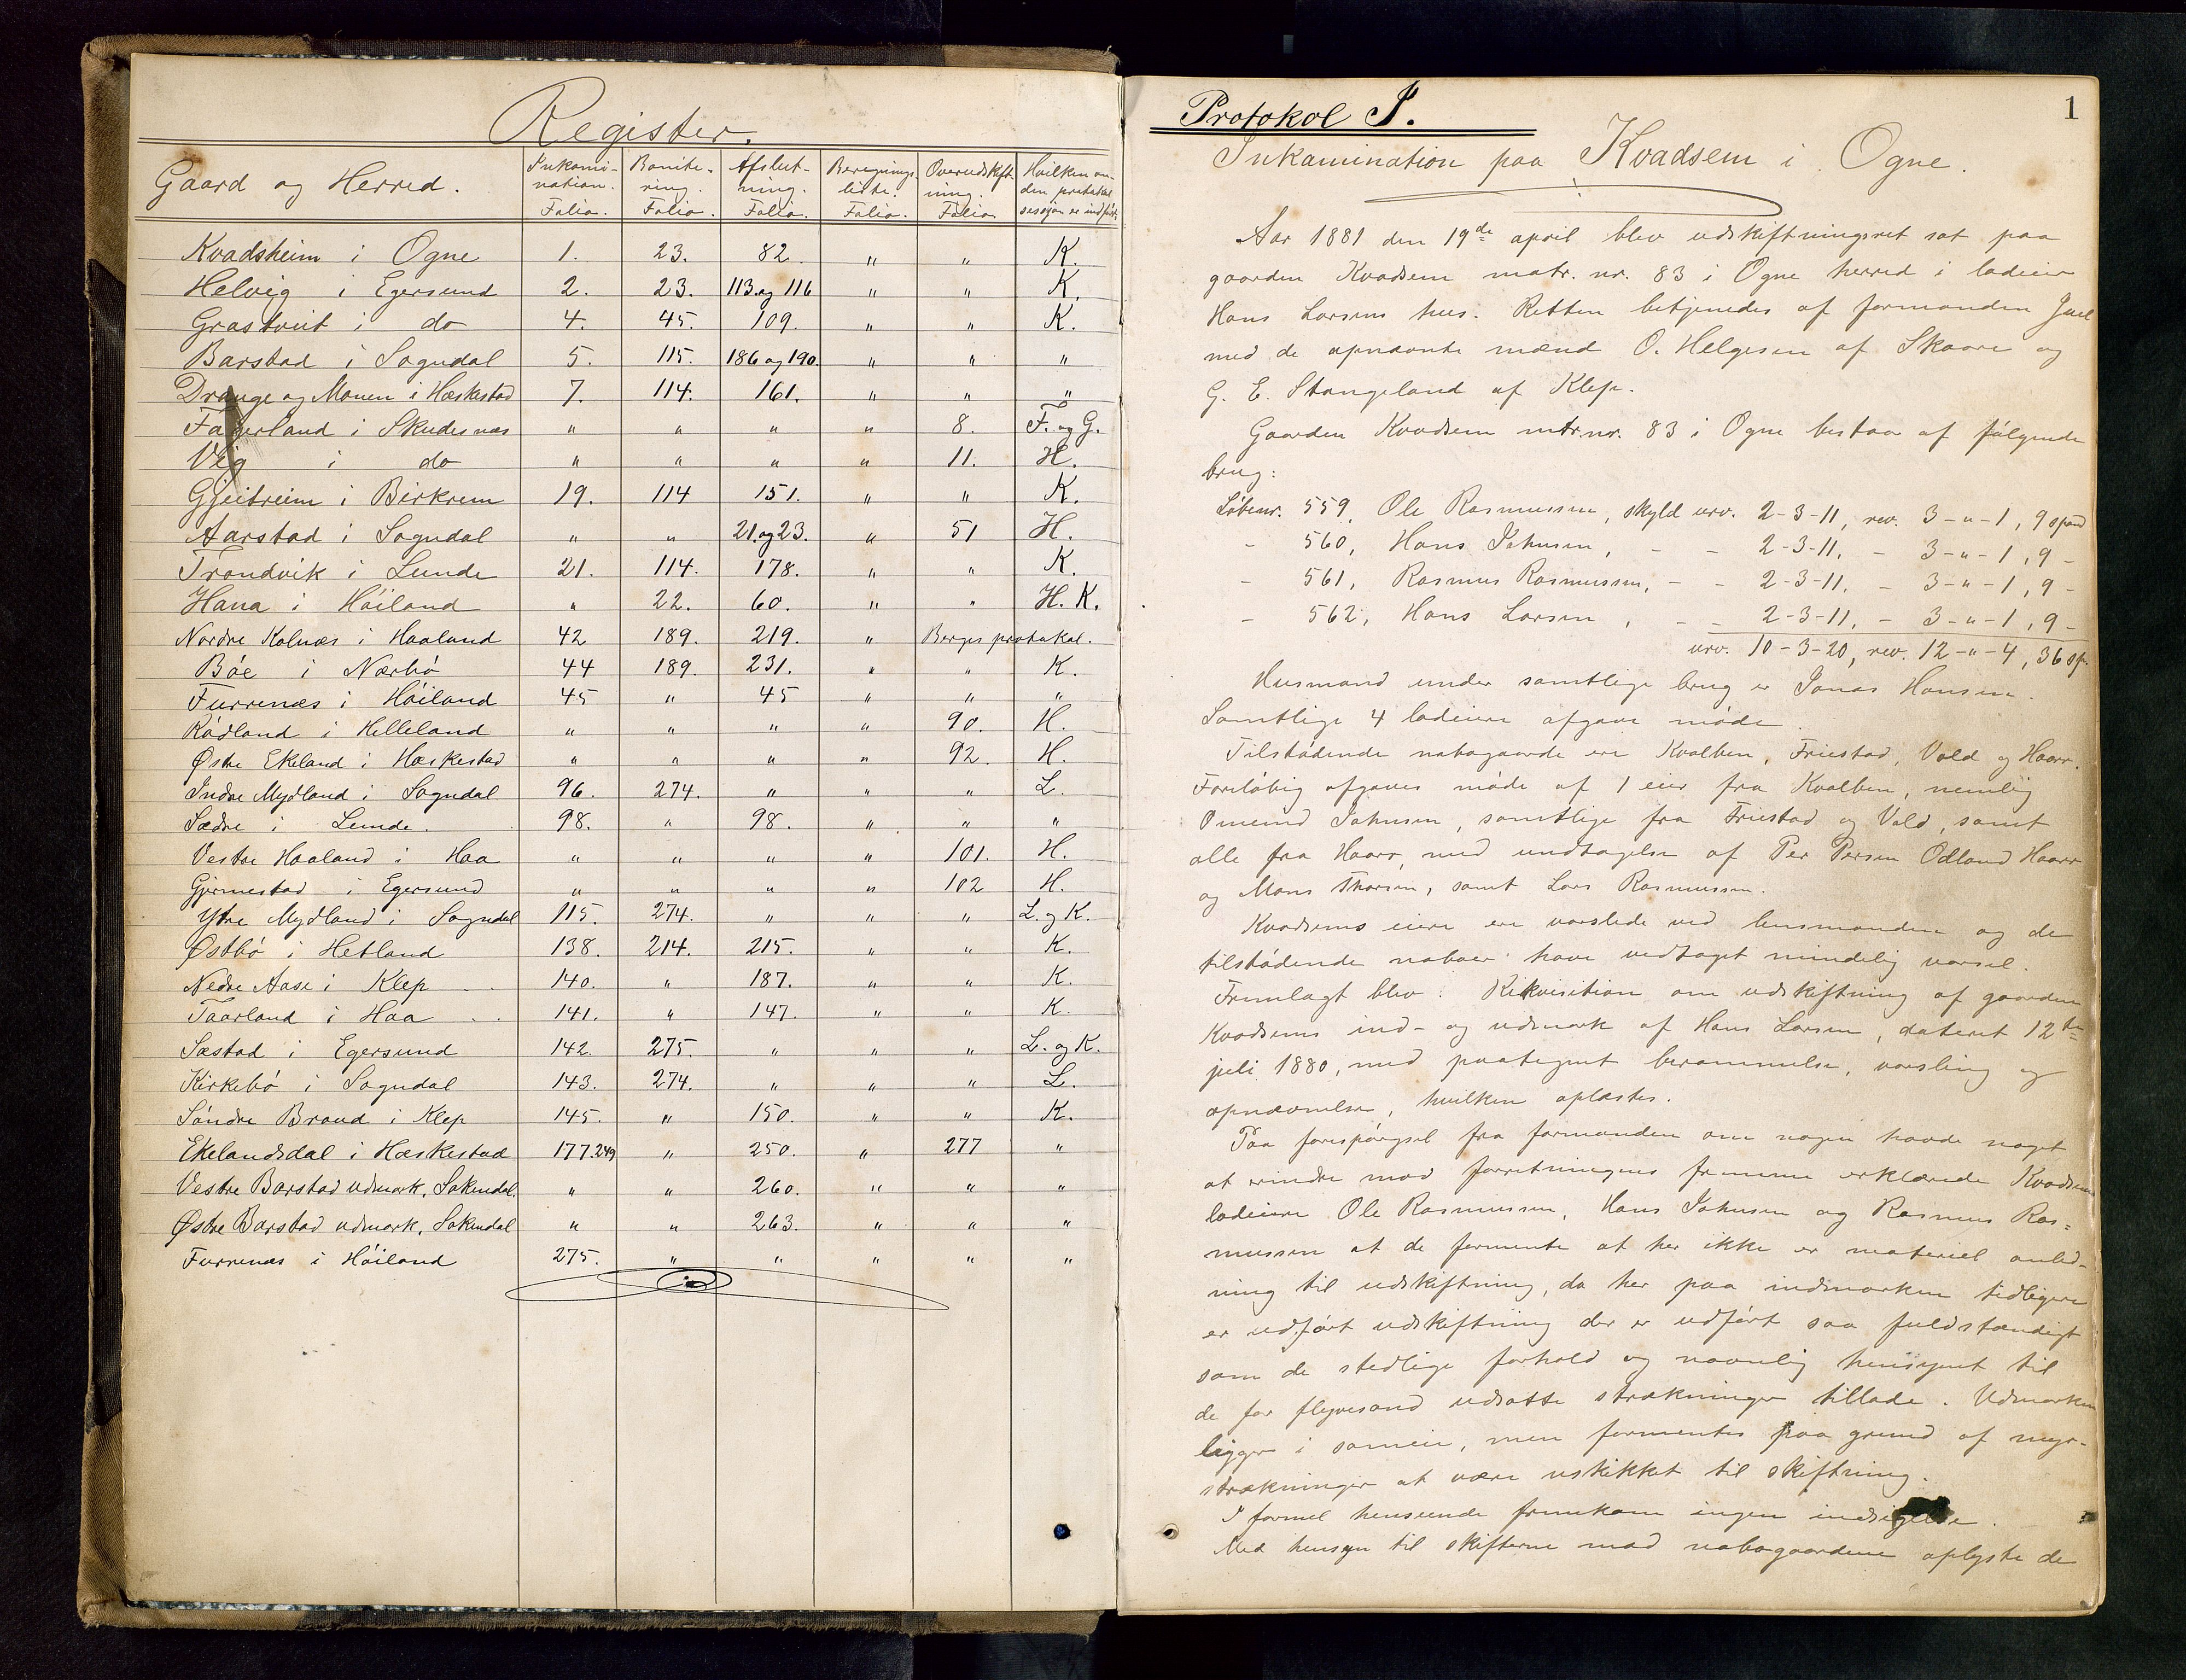 Register.
Gaard og Herred. Inkami-nation. Folio. Bonite-ring. Folio. Afslut-ning. Folio. Beregnings-liste. Folio. Overudskift-ning. Folio. Hvilken an-den protokol sessjon er indført
Kvadsheim i Ogne 1. 23. 82. " " K.
Helvig i Egersund 2. 23. 113 og 116 " " K.
Grastveit i do 4. 45. 109. " " K.
Barstad i Sogndal 5. 115. 186 og 190. " " "
Drange og Monen i Hæskestad 7. 114. 161. " " "
Fagerland i Skudesnæs " " " " 8. F. og G.
Vig i do " " " " 11. H.
Gjeitreim i Birkrem 19. 114 151. " " K.
Aarstad i Sogndal " " 21. og 23. " 51 H.
Trondvik i Lunde 21. 114. 178. " " K.
Hana i Höiland " 22. 60. " " H. K.
Nordre Kolnæs i Haaland 42 189. 219. " Berges protokol.
Böe i Nærbö 44 189. 231. " " K.
Furrenæs i Höiland 45 " 45 " " "
Rödland i Helleland " " " " 90. H.
Østre Ekeland i Hæskestad " " " " 92. H.
Indre Mydland i Sogndal 96. 274. " " " L.
Sædre i Lunde. 98. " 98. " " "
Vestre Haaland i Haa " " " " 101. H.
Gjermestad i Egersund " " " " 102 H.
Ytre Mydland i Sogndal 115. 274. " " " L. og K.
Østbö i Hetland 138. 214. 215. " " K.
Nedre Aase i Klep 140. " 187. " " K.
Taarland i Haa 141. " 147. " " K.
Sæstad i Egersund 142. 275. " " " L. og K.
Kirkebö i Sogndal 143. 274. " " " L.
Söndre Braud i Klep 145. " 150. " " K.
Ekelandsdal i Hæskestad 177. 249 " 250. " 277 "
Vestre Barstad udmark, Sokndal. " " 260. " " "
Østre Barstad udmark, Sokndal " " 263. " " "
Furrenæs i Höiland 275. " " " " "
Protokol I.
1
Inkamination paa Kvadsem i Ogne.
Aar 1881 den 19de april blev udskiftningsret sat paa
gaarden Kvadsem matr. nr. 83 i Ogne herred i ladeier
Hans Larsens hus. Retten betjenedes af formanden Juel
med de opnævnte mænd O. Helgesen af Skaare og
G. E. Stangeland af Klep.
Gaarden Kvadsem mtr. nr. 83 i Ogne bestaar af fölgende
brug:
Löbenr. 559, Ole Rasmussen, skyld urv. 2-3-11, rev. 3-"-1, 9 spd
- 560, Hans Johnsen, - - 2-3-11. - 3-"-1, 9 -
- 561, Rasmus Rasmussen, - - 2-3-11. - 3-"-1, 9 -
- 562, Hans Larsen, - - 2-3-11, - 3-"-1, 9 -
urv. 10-3-20, rev. 12-"-4, 36 sp.
Husmand under samtlige brug er Jonas Hansen.
Samtlige 4 ladeiere afgave möde.
Tilstödende nabogaarde ere Kvalben, Friestad, Vold og Haarr.
Forelöbig afgaves möde af 1 eier fra Kvalben, nemlig
Omund Johnsen, samtlige fra Friestad og Vold, samt
alle fra Haarr, med undtagelse af Per Persen Ödland Haarr
og Mons Thorsen, samt Lars Rasmussen.
Kvadsems eiere ere varslede ved lensmanden og de
tilstödende naboer have vedtaget mindelig varsel.
Fremlagt blev: Rekvisition om udskiftning af gaarden
Kvadsems ind- og udmark af Hans Larsen, dateret 12te
juli 1880, med paategnet berammelse, varsling og
opnævnelse, hvilken oplæstes.
Paa forespörgsel fra formanden om nogen havde noget
at erindre mod forretningens fremme erklærede Kvadsems
ladeiere Ole Rasmussen, Hans Johnsen og Rasmus Ras=
mussen at de formente at her ikke er materiel anled-
ning til udskiftning, da her paa indmarken tidligere
er udfört udskiftning der er udfört saa fuldstændigt
som de stedlige forhold og navnlig hensynet til
de for flyvesand udsatte strækninger tillade. Udmarken
ligger i sameie, men formentes paa grund af myr-
strækninger at være uskikket til skiftning.
I formel henseende fremkom ingen indsigelse.
Med hensyn til skifterne mod nabogaardene oplyste de